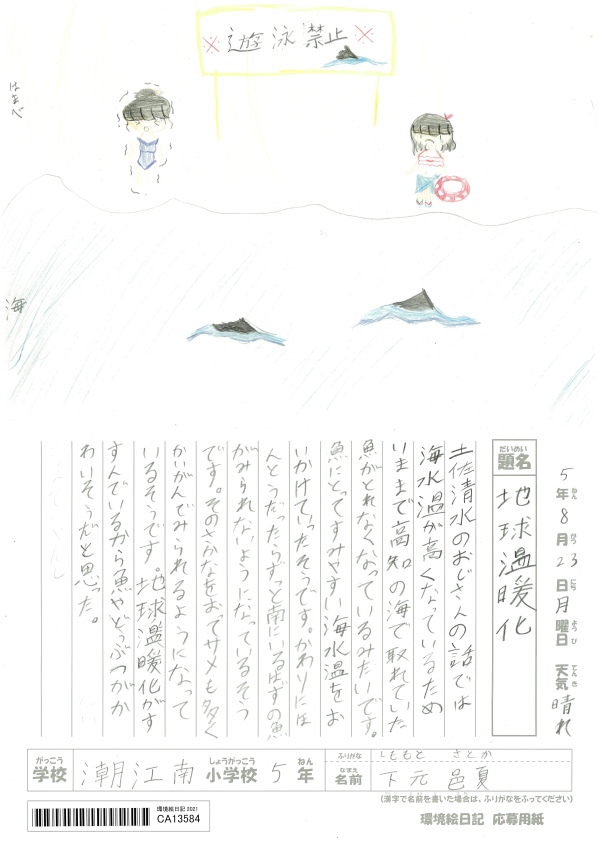 ※遊泳禁止※
はまべ
海
5年8月23日月曜日 天気晴れ
ねん がつ にち ようび てんき
だいめい
題名
地球温暖化
土佐清水のおじさんの話では
海水温が高くなっているため
いままで高知の海で取れていた
魚がとれなくなっているみたいです。
魚にとってすみやすい海水温をお
いかけていったそうです。かわりにほ
んとうだったらずっと南にいるはずの魚
がみられないようになっているそう
です。そのさかなをおってサメも多く
かいがんでみられるようになって
いるそうです。地球温暖化がす
すんでいるから魚やどうぶつがか
わいそうだと思った。
がっこう しょうがっこう ねん
学校 潮江南 小学校 5年
ふりがな しももと さとか
なまえ
名前 下元 邑夏
(漢字で名前を書いた場合は、ふりがなをふってください)
環境絵日記 2021
CA13584
環境絵日記 応募用紙